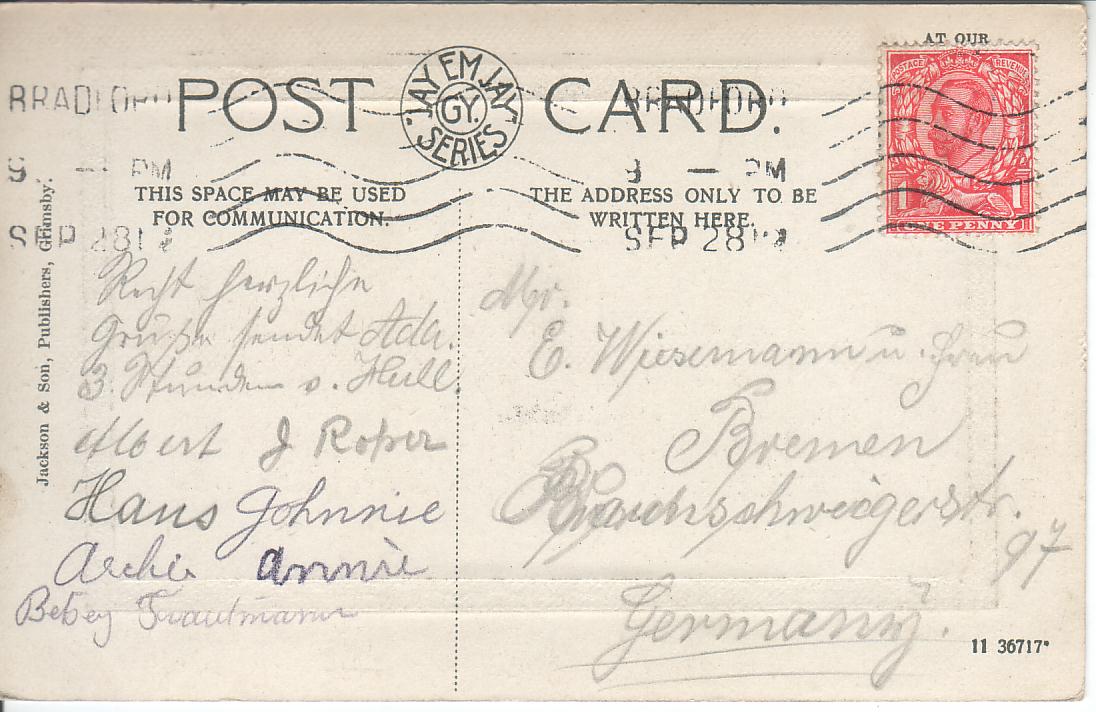 AT OUR
POST CARD.
"JAY EM JAY" GY. SERIES
BRADFORD
9 — PM
SEP 28 12
BRADFORD
9 — PM
SEP 28 12
POSTAGE REVENUE
1 1
ONE PENNY
THIS SPACE MAY BE USED
FOR COMMUNICATION.
THE ADDRESS ONLY TO BE
WRITTEN HERE.
Jackson & Son, Publishers, Grimsby.
Recht herzliche
Grüße sendet Ada.
3 Stunden v. Hull.
Albert J Roper
Hans Johnnie
Archie Annie
Betsy Trautmann
Mr.
E. Wiesemann u. Frau
Bremen
Braunschweigerstr.
97
Germany.
11 36717*